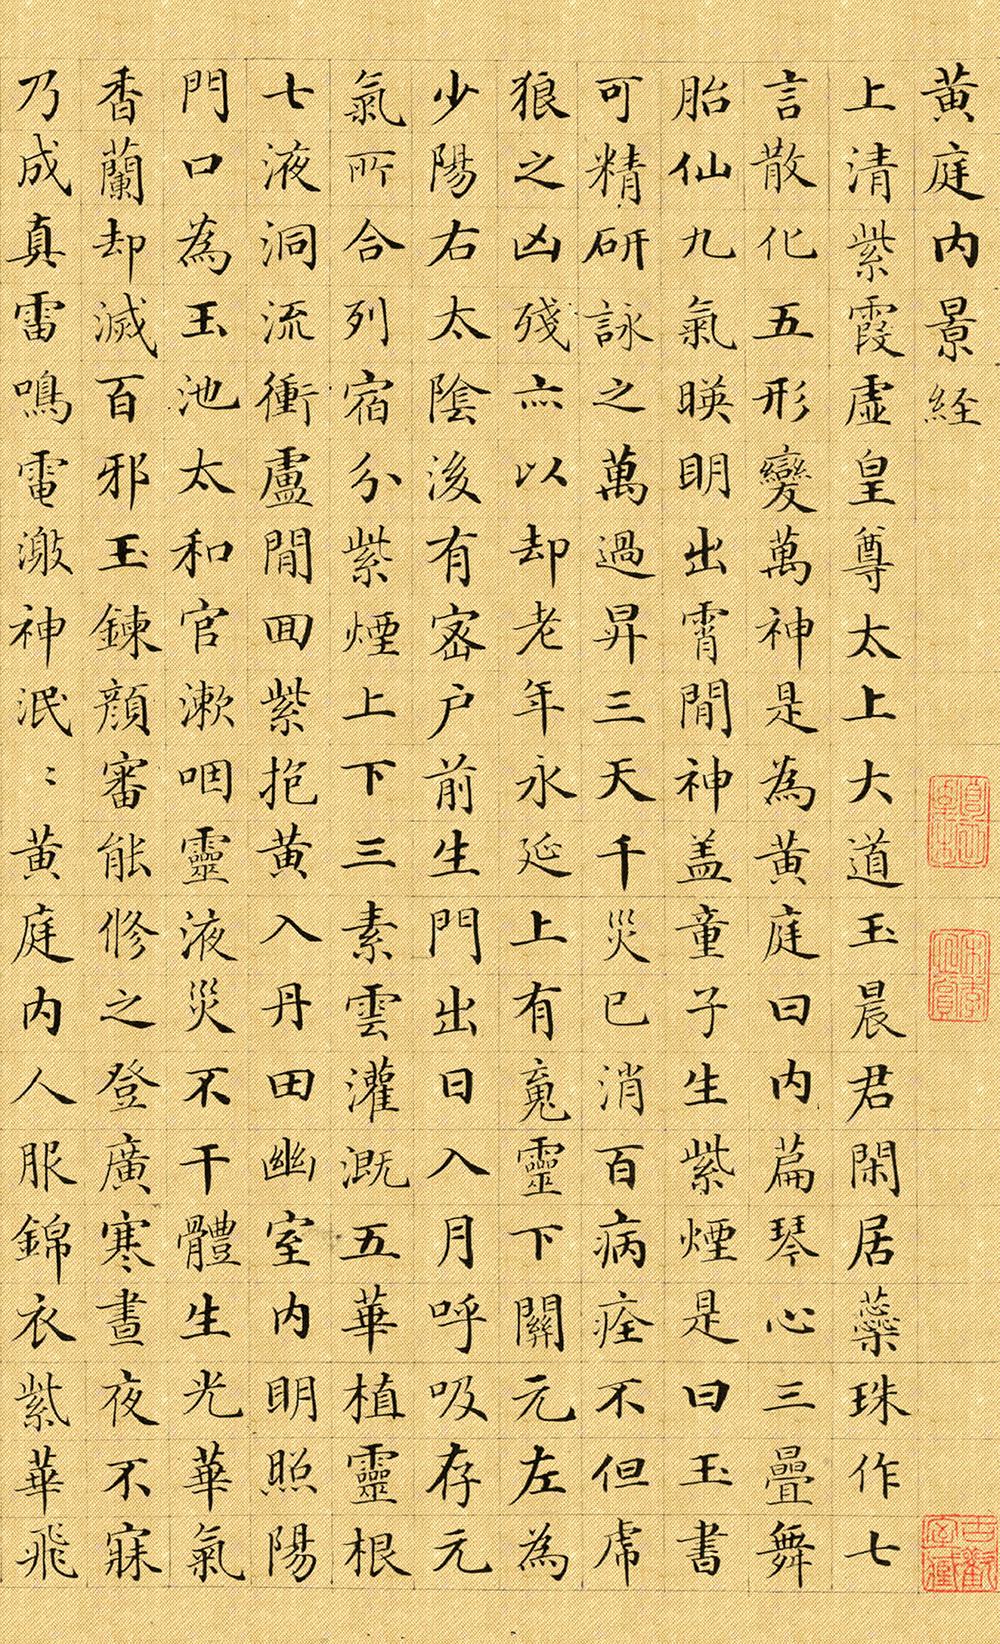 黄庭内景経
上清紫霞虛皇尊太上大道玉晨君閑居蘂珠作七
言散化五形變萬神是為黄庭曰内萹琴心三疊舞
胎仙九氣暎明出霄間神盖童子生紫煙是曰玉書
可精研詠之萬過昇三天千災已消百病痊不但虎
狼之凶殘亦以却老年永延上有䰟靈下關元左為
少陽右太陰後有密户前生門出日入月呼吸存元
氣所合列宿分紫煙上下三素雲灌溉五華植靈根
七液洞流衝盧間回紫抱黄入丹田幽室内明照陽
門口為玉池太和官漱咽靈液災不干體生光華氣
香蘭却滅百邪玉錬顔審能修之登廣寒晝夜不寐
乃成真雷鳴電激神泯〻黄庭内人服錦衣紫華飛